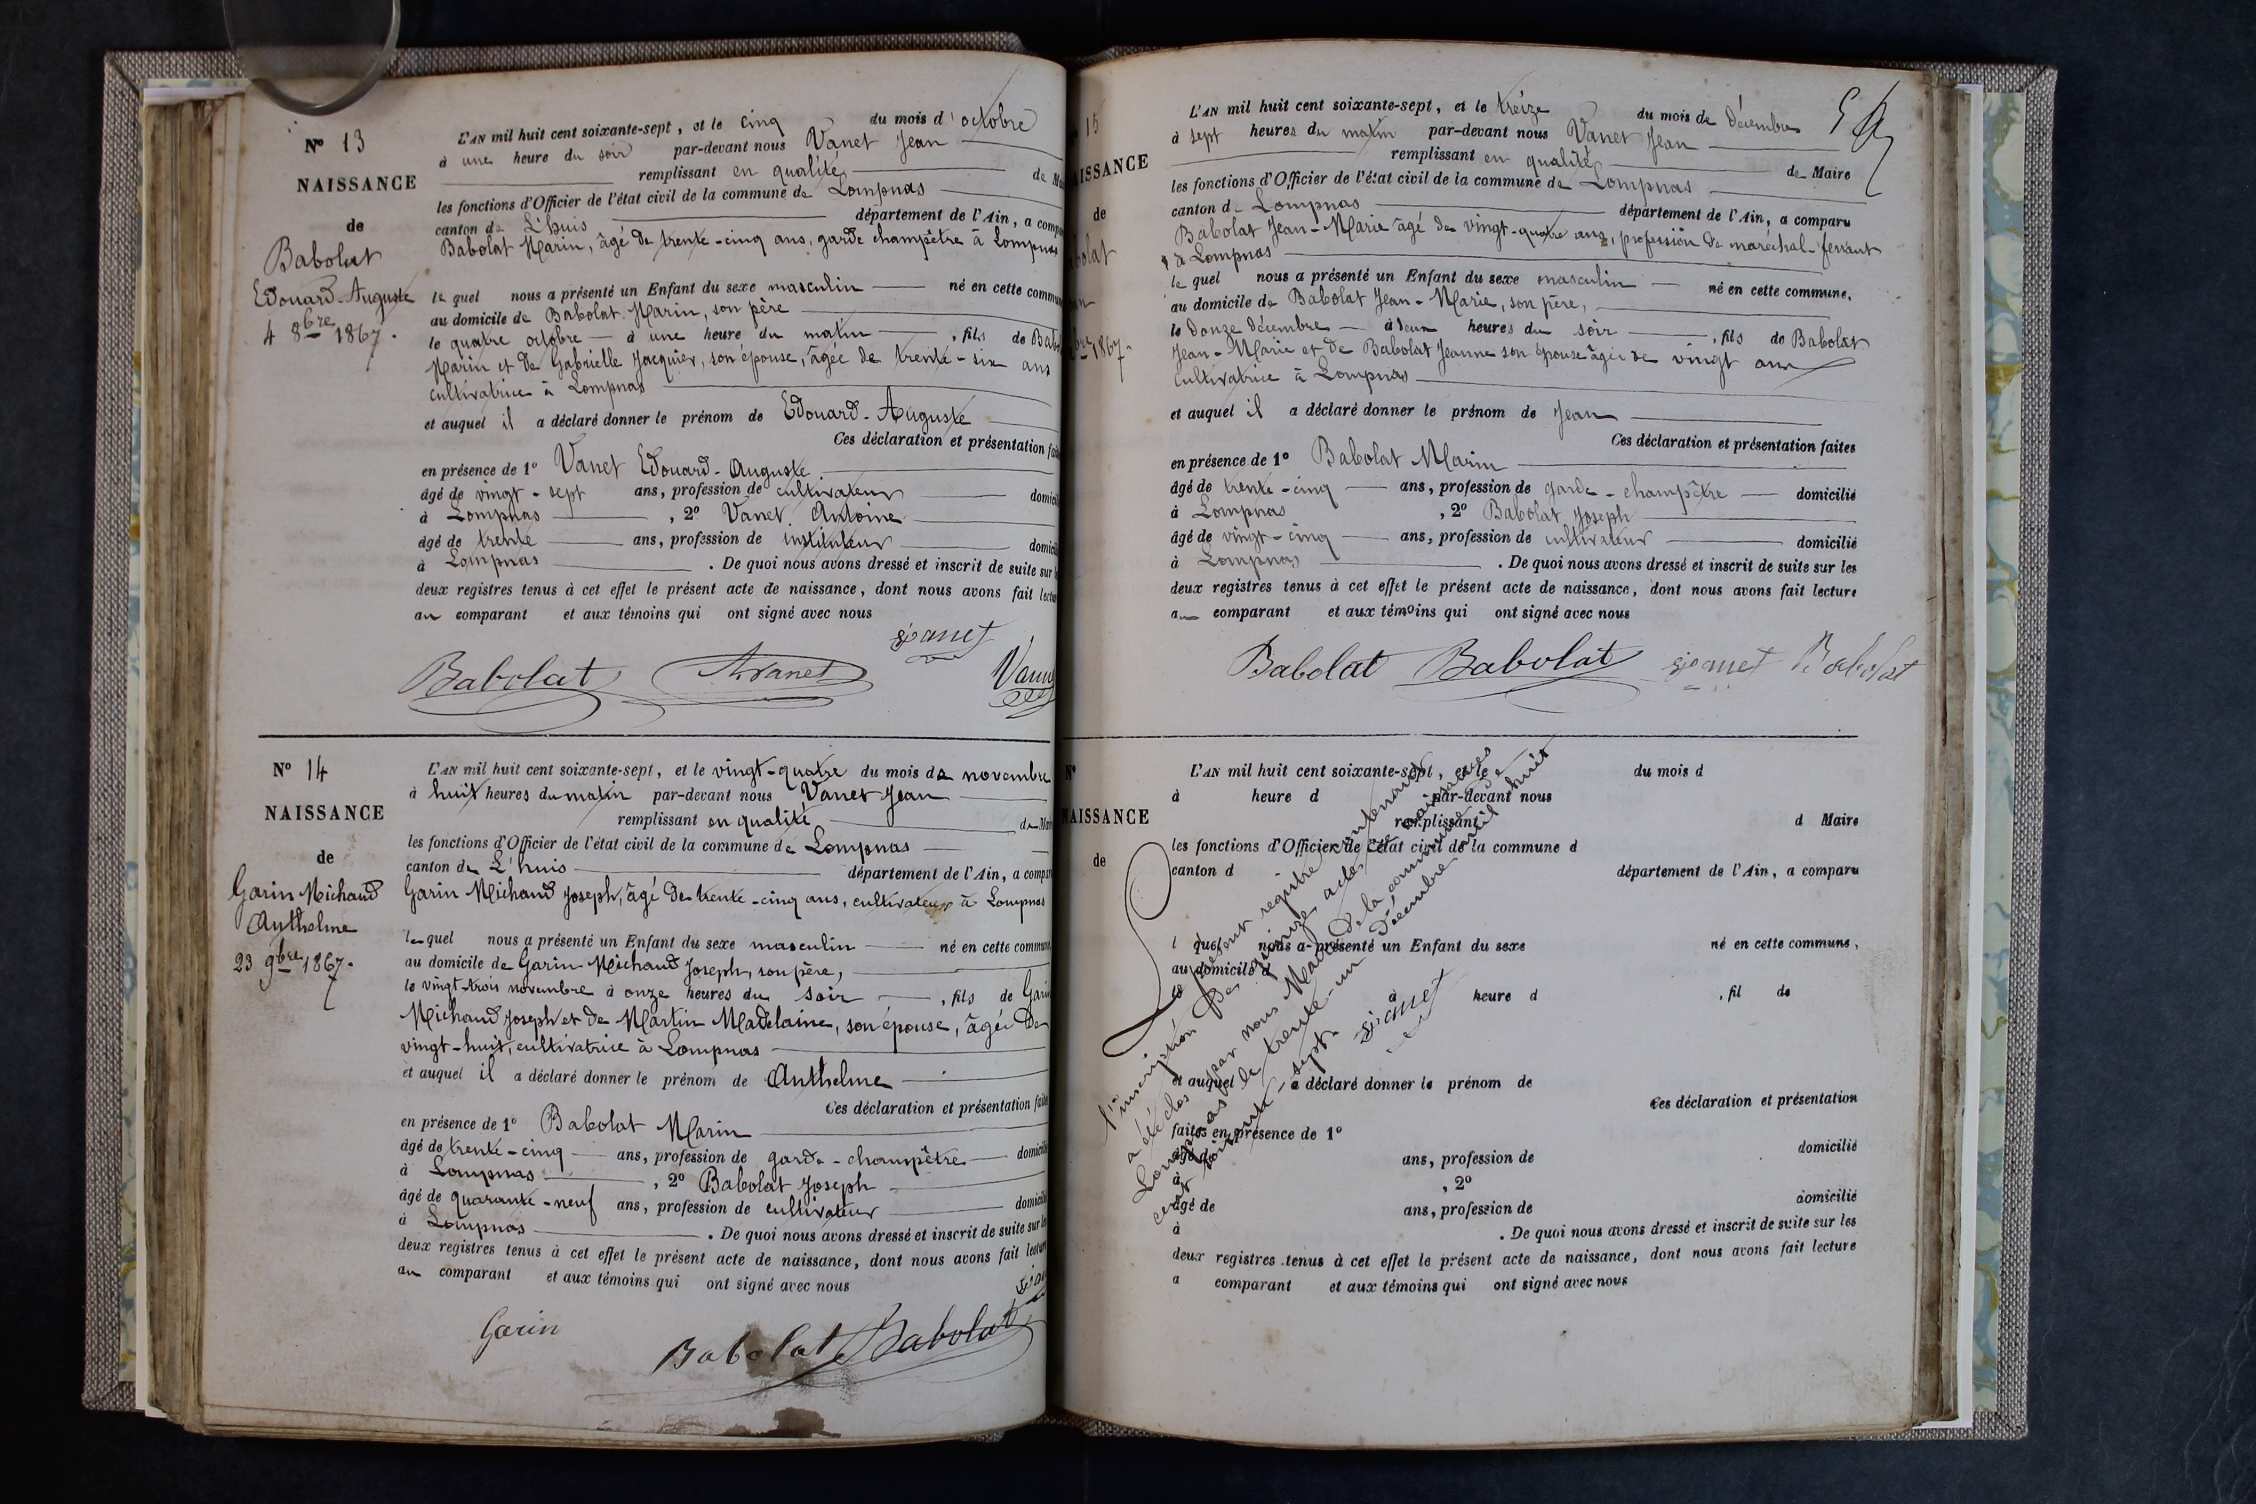 Nº 13
NAISSANCE
de
Babolat
Edouard-Auguste
4 8bre 1867.
L'AN mil huit cent soixante-sept, et le cinq du mois d'octobre
à une heure du soir par-devant nous Vanet Jean
remplissant en qualité de Mai
les fonctions d'Officier de l'état civil de la commune de Lompnas
canton de L'huis département de l'Ain, a compa
Babolat Marin, âgé de trente-cinq ans, garde champêtre à Lompnas
le quel nous a présenté un Enfant du sexe masculin né en cette commun
au domicile de Babolat Marin, son père
le quatre octobre à une heure du matin, fils de Babo
Marin et de Gabrielle Jacquier, son épouse, âgée de trente-six ans
cultivatrice à Lompnas
et auquel il a déclaré donner le prénom de Edouard-Auguste
Ces déclaration et présentation fai
en présence de 1º Vanet Edouard-Auguste
âgé de vingt-sept ans, profession de cultivateur domicil
à Lompnas, 2º Vanet Antoine
âgé de trente ans, profession de instituteur domicil
à Lompnas. De quoi nous avons dressé et inscrit de suite sur l
deux registres tenus à cet effet le présent acte de naissance, dont nous avons fait lectur
au comparant et aux témoins qui ont signé avec nous
Vanet
Babolat Avanet Vanet
Nº 14
NAISSANCE
de
Garin Michaud
Anthelme
23 9bre 1867.
L'AN mil huit cent soixante-sept, et le vingt-quatre du mois de novembre
à huit heures du matin par-devant nous Vanet Jean
remplissant en qualité de Mai
les fonctions d'Officier de l'état civil de la commune de Lompnas
canton de L'huis département de l'Ain, a compar
Garin Michaud Joseph, âgé de trente-cinq ans, cultivateur à Lompnas
le quel nous a présenté un Enfant du sexe masculin né en cette commune
au domicile de Garin Michaud Joseph, son père,
le vingt-trois novembre à onze heures du soir, fils de Garin
Michaud Joseph et de Martin Madelaine, son épouse, âgée de
vingt-huit, cultivatrice à Lompnas
et auquel il a déclaré donner le prénom de Anthelme
Ces déclaration et présentation faites
en présence de 1º Babolat Marin
âgé de trente-cinq ans, profession de garde-champêtre domicilié
à Lompnas, 2º Babolat Joseph
âgé de quarante-neuf ans, profession de cultivateur domicilié
à Lompnas. De quoi nous avons dressé et inscrit de suite sur les
deux registres tenus à cet effet le présent acte de naissance, dont nous avons fait lecture
au comparant et aux témoins qui ont signé avec nous
Garin Babolat Babolat
15
AISSANCE
de
bolat
1867.
L'AN mil huit cent soixante-sept, et le treize du mois de Décembre
à sept heures du matin par-devant nous Vanet Jean
remplissant en qualité de Maire
les fonctions d'Officier de l'état civil de la commune de Lompnas
canton de Lompnas département de l'Ain, a comparu
Babolat Jean-Marie âgé de vingt-quatre ans, profession de marechal-ferrant
à Lompnas
le quel nous a présenté un Enfant du sexe masculin né en cette commune.
au domicile de Babolat Jean-Marie, son père,
le douze décembre à deux heures du soir, fils de Babolat
Jean-Marie et de Babolat Jeanne son épouse âgée de vingt ans
cultivatrice à Lompnas
et auquel il a déclaré donner le prénom de Jean
Ces déclaration et présentation faites
en présence de 1º Babolat Marin
âgé de trente-cinq ans, profession de garde-champêtre domicilié
à Lompnas, 2º Babolat Joseph
âgé de vingt-cinq ans, profession de cultivateur domicilié
à Lompnas. De quoi nous avons dressé et inscrit de suite sur les
deux registres tenus à cet effet le présent acte de naissance, dont nous avons fait lecture
au comparant et aux témoins qui ont signé avec nous
Babolat Babolat Vanet Babolat
Nº
NAISSANCE
de
L'AN mil huit cent soixante-sept, et le du mois d
à heure d par-devant nous
remplissant d Maire
les fonctions d'Officier de l'état civil de la commune d
canton d département de l'Ain, a comparu
l quel nous a présenté un Enfant du sexe né en cette commune,
au domicile d
à heure d, fil de
et auquel a déclaré donner le prénom de
Ces déclaration et présentation
faites en présence de 1º
âgé de ans, profession de domicilié
à, 2º
âgé de ans, profession de domicilié
à. De quoi nous avons dressé et inscrit de suite sur les
deux registres tenus à cet effet le présent acte de naissance, dont nous avons fait lecture
a comparant et aux témoins qui ont signé avec nous
Le présent registre contenant
l'inscription de quinze actes de naissances
a été clos par nous Maire de la commune de
Lompnas le trente-un Décembre mil huit
cent soixante-sept.
Vanet